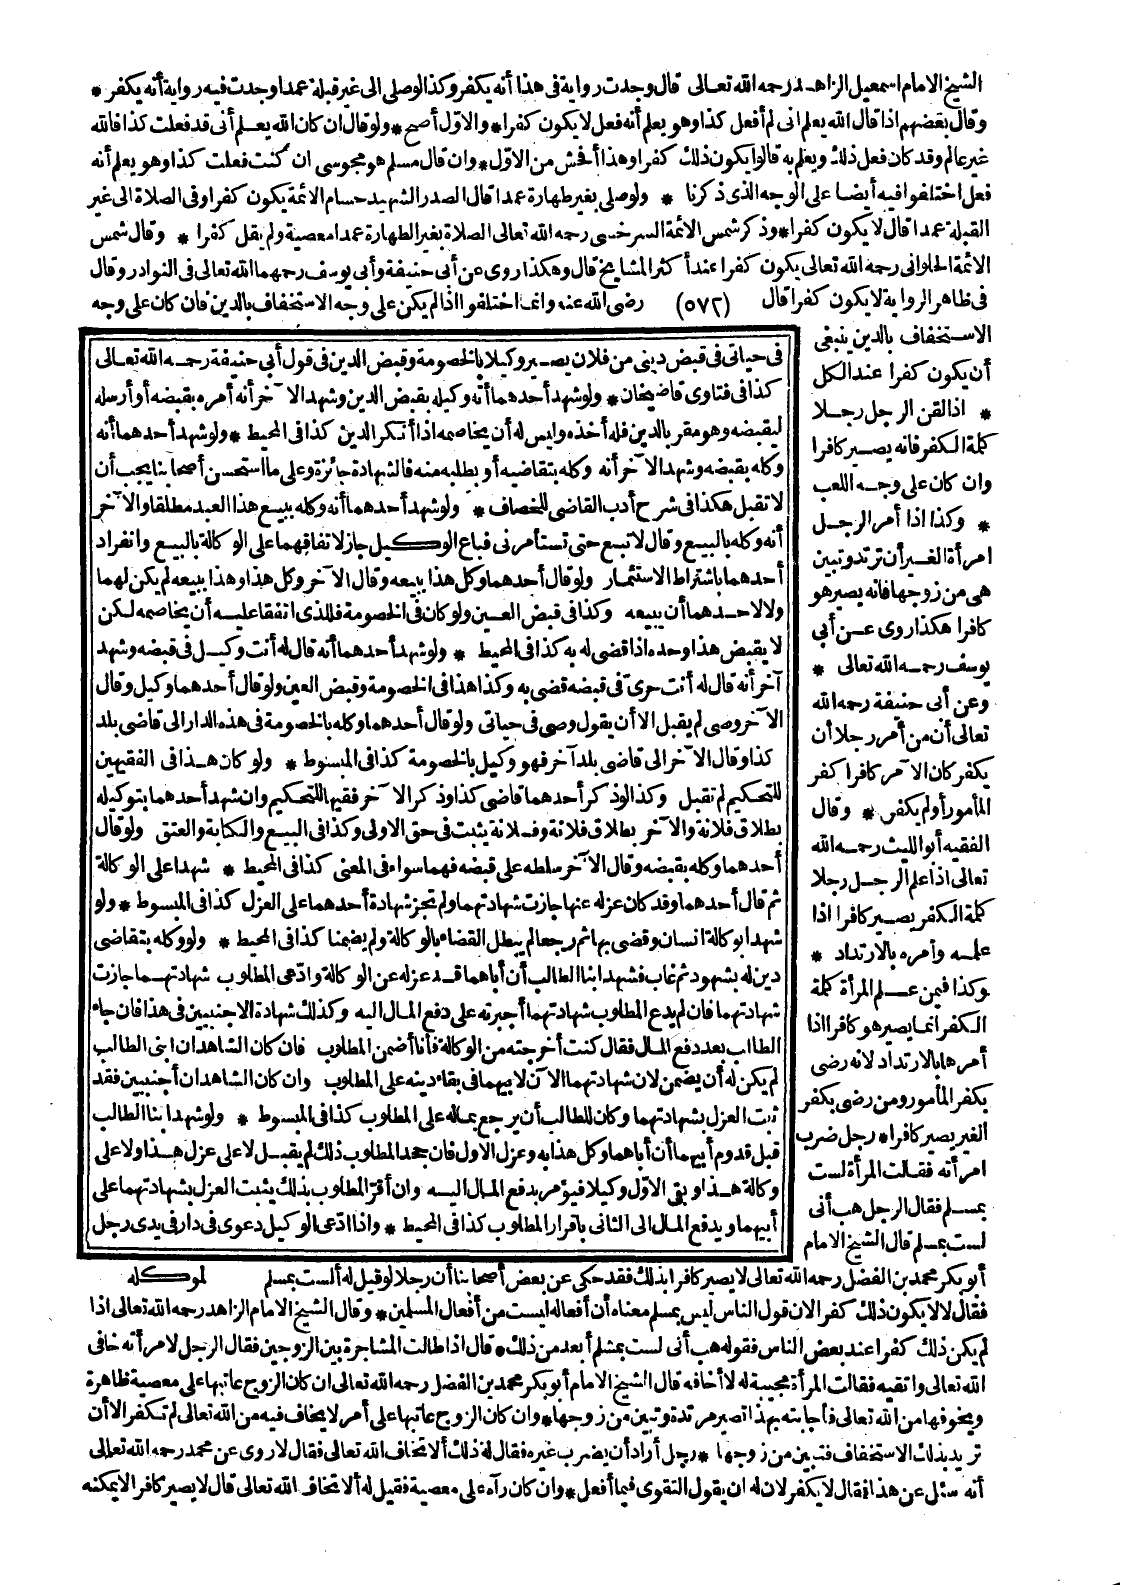 الشيخ الامام اسمعيل الزاهد رحمه الله تعالى قال وجدت رواية فى هذا أنه يكفر وكذا لو صلى الى غير قبلة عمدا وجدت فيه رواية أنه يكفر *
وقال بعضهم اذا قال الله يعلم انى لم أفعل كذا وهو يعلم أنه فعل لا يكون كفرا * والاوّل أصح * ولو قال ان كان الله يعلم أنى قد فعلت كذا فالله
غير عالم وقد كان فعل ذلك ويعلم به قالوا يكون ذلك كفرا وهذا أفحش من الاوّل * وان قال مسلم هو مجوسى ان كنت فعلت كذا وهو يعلم أنه
فعل اختلفوا فيه أيضا على الوجه الذى ذكرنا * ولو صلى بغير طهارة عمدا قال الصدر الشهيد حسام الائمة يكون كفرا وفى الصلاة الى غير
القبلة عمدا قال لا يكون كفرا * وذكر شمس الائمة السرخسى رحمه الله تعالى الصلاة بغير الطهارة عمدا معصية ولم يقل كفرا * وقال شمس
الائمة الحلوانى رحمه الله تعالى يكون كفرا عند أكثر المشايخ قال وهكذا روى عن أبى حنيفة وأبى يوسف رحمهما الله تعالى فى النوادر وقال
فى ظاهر الرواية لا يكون كفرا قال (٥٧٢) رضى الله عنه وانما اختلفوا اذا لم يكن على وجه الاستخفاف بالدين فان كان على وجه
الاستخفاف بالدين ينبغى
أن يكون كفرا عند الكل
* اذا لقن الرجل رجلا
كلمة الكفر فانه يصير كافرا
وان كان على وجه اللعب
* وكذا اذا أمر الرجل
امرأة الغير أن ترتد وتبين
هى من زوجها فانه يصير هو
كافرا هكذا روى عن أبى
يوسف رحمه الله تعالى *
وعن أبى حنيفة رحمه الله
تعالى أن من أمر رجلا أن
يكفر كان الآمر كافرا كفر
المأمور أو لم يكفر * وقال
الفقيه أبو الليث رحمه الله
تعالى اذا علم الرجل رجلا
كلمة الكفر يصير كافرا اذا
علمه وأمره بالارتداد *
وكذا فيمن علم المرأة كلمة
الكفر انما يصير هو كافرا اذا
أمرها بالارتداد لانه رضى
بكفر المأمور ومن رضى بكفر
الغير يصير كافرا * رجل ضرب
امرأته فقالت المرأة لست
بمسلم فقال الرجل هب أنى
لست بمسلم قال الشيخ الامام
فى حياتى فى قبض دينى من فلان يصير وكيلا بالخصومة وقبض الدين فى قول أبى حنيفة رحمه الله تعالى
كذا فى فتاوى قاضيخان * ولو شهد أحدهما أنه وكيله بقبض الدين وشهد الآخر أنه أمره بقبضه أو أرسله
ليقبضه وهو مقر بالدين فله أخذه وليس له أن يخاصمه اذا أنكر الدين كذا فى المحيط * ولو شهد أحدهما أنه
وكله بقبضه وشهد الآخر أنه وكله بتقاضيه أو بطلبه منه فالشهادة جائزة وعلى ما استحسن أصحابنا يجب أن
لا تقبل هكذا فى شرح أدب القاضى للخصاف * ولو شهد أحدهما أنه وكله ببيع هذا العبد مطلقا والآخر
أنه وكله بالبيع وقال لا تبع حتى تستأمرنى فباع الوكيل جاز لاتفاقهما على الوكالة بالبيع وانفراد
أحدهما باشتراط الاستئمار ولو قال أحدهما وكل هذا ببيعه وقال الآخر وكل هذا وهذا ببيعه لم يكن لهما
ولا لاحدهما أن يبيعه وكذا فى قبض العين ولو كان فى الخصومة فللذى اتفقا عليه أن يخاصمه لكن
لا يقبض هذا وحده اذا قضى له به كذا فى المحيط * ولو شهد أحدهما أنه قال له أنت وكيل فى قبضه وشهد
آخر أنه قال له أنت حرىّ فى قبضه قضى به وكذا هذا فى الخصومة وقبض العين ولو قال أحدهما وكيل وقال
الآخر وصى لم يقبل الا أن يقول وصى فى حياتى ولو قال أحدهما وكله بالخصومة فى هذه الدار الى قاضى بلد
كذا وقال الآخر الى قاضى بلد آخر فهو وكيل بالخصومة كذا فى المبسوط * ولو كان هذا فى الفقيهين
للتحكيم لم تقبل وكذا لو ذكر أحدهما قاضى كذا وذكر الآخر فقيها للتحكيم وان شهد أحدهما بتوكيله
بطلاق فلانة والآخر بطلاق فلانة وفلانة يثبت فى حق الاولى وكذا فى البيع والكتابة والعتق ولو قال
أحدهما وكله بقبضه وقال الآخر سلطه على قبضه فهما سواء فى المعنى كذا فى المحيط * شهدا على الوكالة
ثم قال أحدهما وقد كان عزله عنها جازت شهادتهما ولم تجز شهادة أحدهما على العزل كذا فى المبسوط * ولو
شهدا بوكالة انسان وقضى بها ثم رجعا لم يبطل القضاء بالوكالة ولم يضمنا كذا فى المحيط * ولو وكله بتقاضى
دين له بشهود ثم غاب فشهد ابنا الطالب أن أباهما قد عزله عن الوكالة وادّعى المطلوب شهادتهما جازت
شهادتهما فان لم يدع المطلوب شهادتهما أجبرته على دفع المال اليه وكذلك شهادة الاجنبيين فى هذا فان جاء
الطالب بعد دفع المال فقال كنت أخرجته من الوكالة فأنا أضمن المطلوب فان كان الشاهدان ابنى الطالب
لم يكن له أن يضمن لان شهادتهما الآن لابيهما فى بقاء دينه على المطلوب وان كان الشاهدان أجنبيين فقد
ثبت العزل بشهادتهما وكان للطالب أن يرجع بماله على المطلوب كذا فى المبسوط * ولو شهد ابنا الطالب
قبل قدوم أبيهما أن أباهما وكل هذا به وعزل الاول فان جحد المطلوب ذلك لم يقبل لا على عزل هذا ولا على
وكالة هذا وبقى الاوّل وكيلا فيؤمر بدفع المال اليه وان أقرّ المطلوب بذلك يثبت العزل بشهادتهما على
أبيهما ويدفع المال الى الثانى باقرار المطلوب كذا فى المحيط * واذا ادّعى الوكيل دعوى فى دار فى يدى رجل
لموكله
أبو بكر محمد بن الفضل رحمه الله تعالى لا يصير كافرا بذلك فقد حكى عن بعض أصحابنا أن رجلا لو قيل له ألست بمسلم
فقال لا لا يكون ذلك كفرا لان قول الناس ليس بمسلم معناه أن أفعاله ليست من أفعال المسلمين * وقال الشيخ الامام الزاهد رحمه الله تعالى اذا
لم يكن ذلك كفرا عند بعض الناس فقوله هب أنى لست بمسلم أبعد من ذلك * قال اذا طالت المشاجرة بين الزوجين فقال الرجل لامرأته خافى
الله تعالى واتقيه فقالت المرأة مجيبة له لا أخافه قال الشيخ الامام أبو بكر محمد بن الفضل رحمه الله تعالى ان كان الزوج عاتبها على معصية ظاهرة
ويخوفها من الله تعالى فأجابته بهذا تصير مرتدة وتبين من زوجها * وان كان الزوج عاتبها على أمر لا يخاف فيه من الله تعالى لم تكفر الا أن
تريد بذلك الاستخفاف فتبين من زوجها * رجل أراد أن يضرب غيره فقال له ذلك ألا تخاف الله تعالى فقال لا روى عن محمد رحمه الله تعالى
أنه سئل عن هذا فقال لا يكفر لان له ان يقول التقوى فيما أفعل * وان كان رآه على معصية فقيل له ألا تخاف الله تعالى قال لا يصير كافرا لا يمكنه